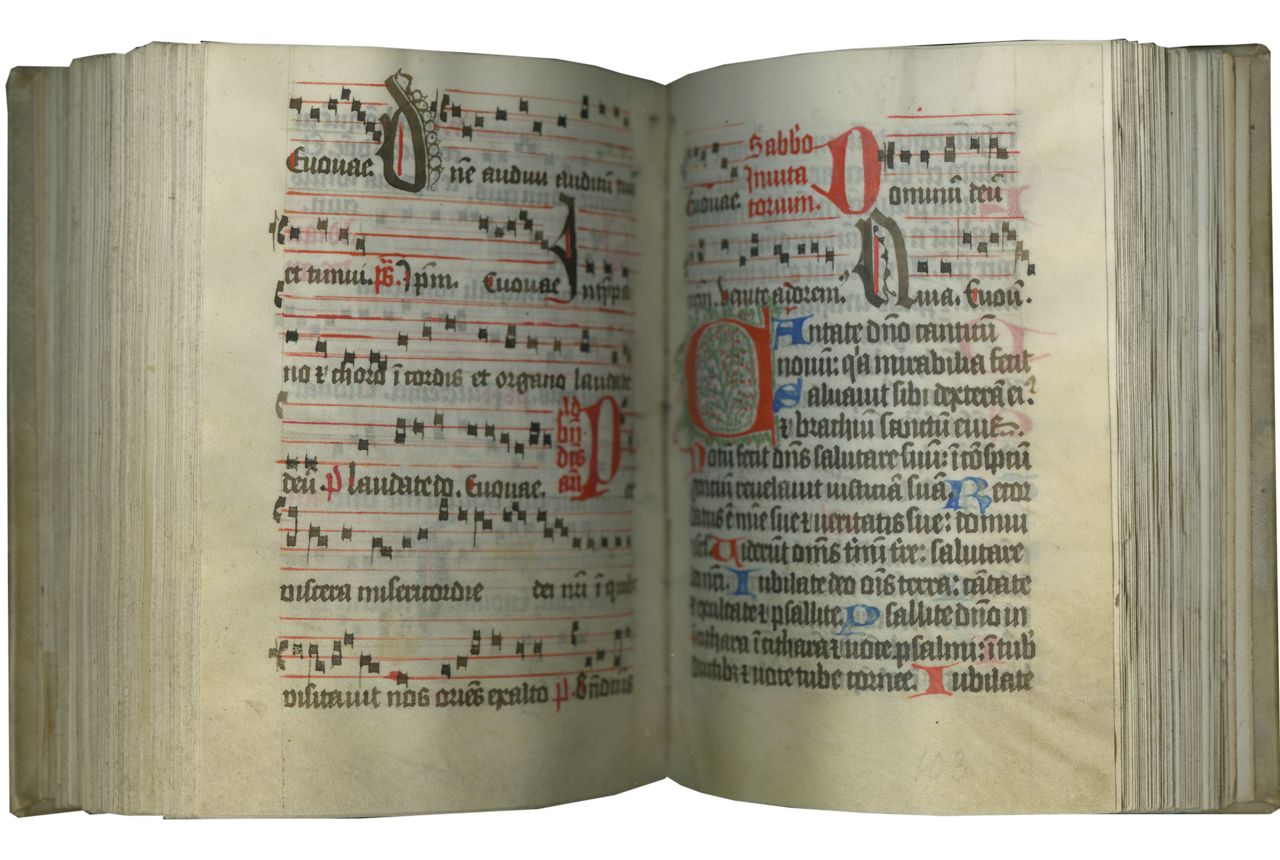 Euouae. Dn̄e audiui auditū tuū
et timui. p̄s. Jpm̄. Euouae In tympa
no ⁊ choro ī cordis et organo laudate
deū. P laudate do. Euouae. Ad bn̄dis an̄ Per
viscera misericordie dei nr̄i ī quibꝰ
visitauit nos oriēs exalto p̄. Bn̄dictus
Euouae. Sabb̄o Inuita torium. Dominū deū
nr̄m. Venite adorem̄. Euoū.
Cantate dn̄o canticū
nouū: q̄a mirabilia fecit
Saluauit sibi dexterā eiꝰ:
⁊ brachiū sanctū eius.
Notū fecit dn̄s salutare suū: ī cōspctū
gentiū reuelauit iusticiā suā. Recor
datus ē mīe sue ⁊ ueritatis sue: domui
isrl̄. Uiderūt om̄s t̄mī t̄re: salutare
dei nr̄i. Iubilate deo oīs terra: cātate
⁊ exultate ⁊ psallite. Psallite dn̄o in
cithara ī cithara ⁊ uoce psalmi: ī tubꝭ
ductilibꝫ ⁊ uoce tube cornee. Iubilate
103